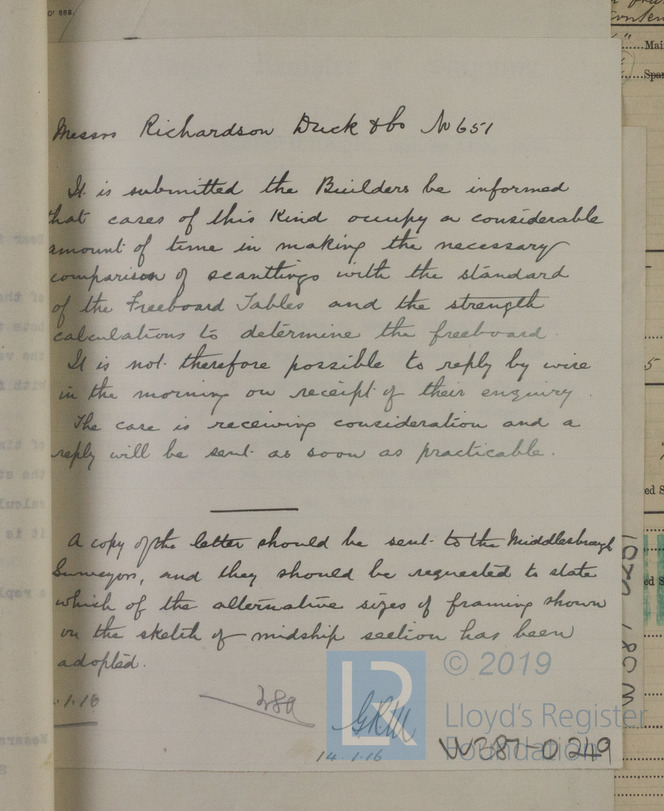 Messrs Richardson Duck & Co No 651
It is submitted the Builders be informed
that cases of this kind occupy a considerable
amount of time in making the necessary
comparison of scantlings with the standard
of the Freeboard Tables and the strength
calculations to determine the freeboard.
It is not therefore possible to reply by wire
in the morning on receipt of their enquiry.
The case is receiving consideration and a
reply will be sent as soon as practicable.
A copy of the letter should be sent to the Middlesbrough
Surveyors, and they should be requested to state
which of the alternative sizes of framing shown
on the sketch of midship section has been
adopted.
.1.16
14.1.16
LR
© 2019
Lloyd's Register
Foundation
W387-0249